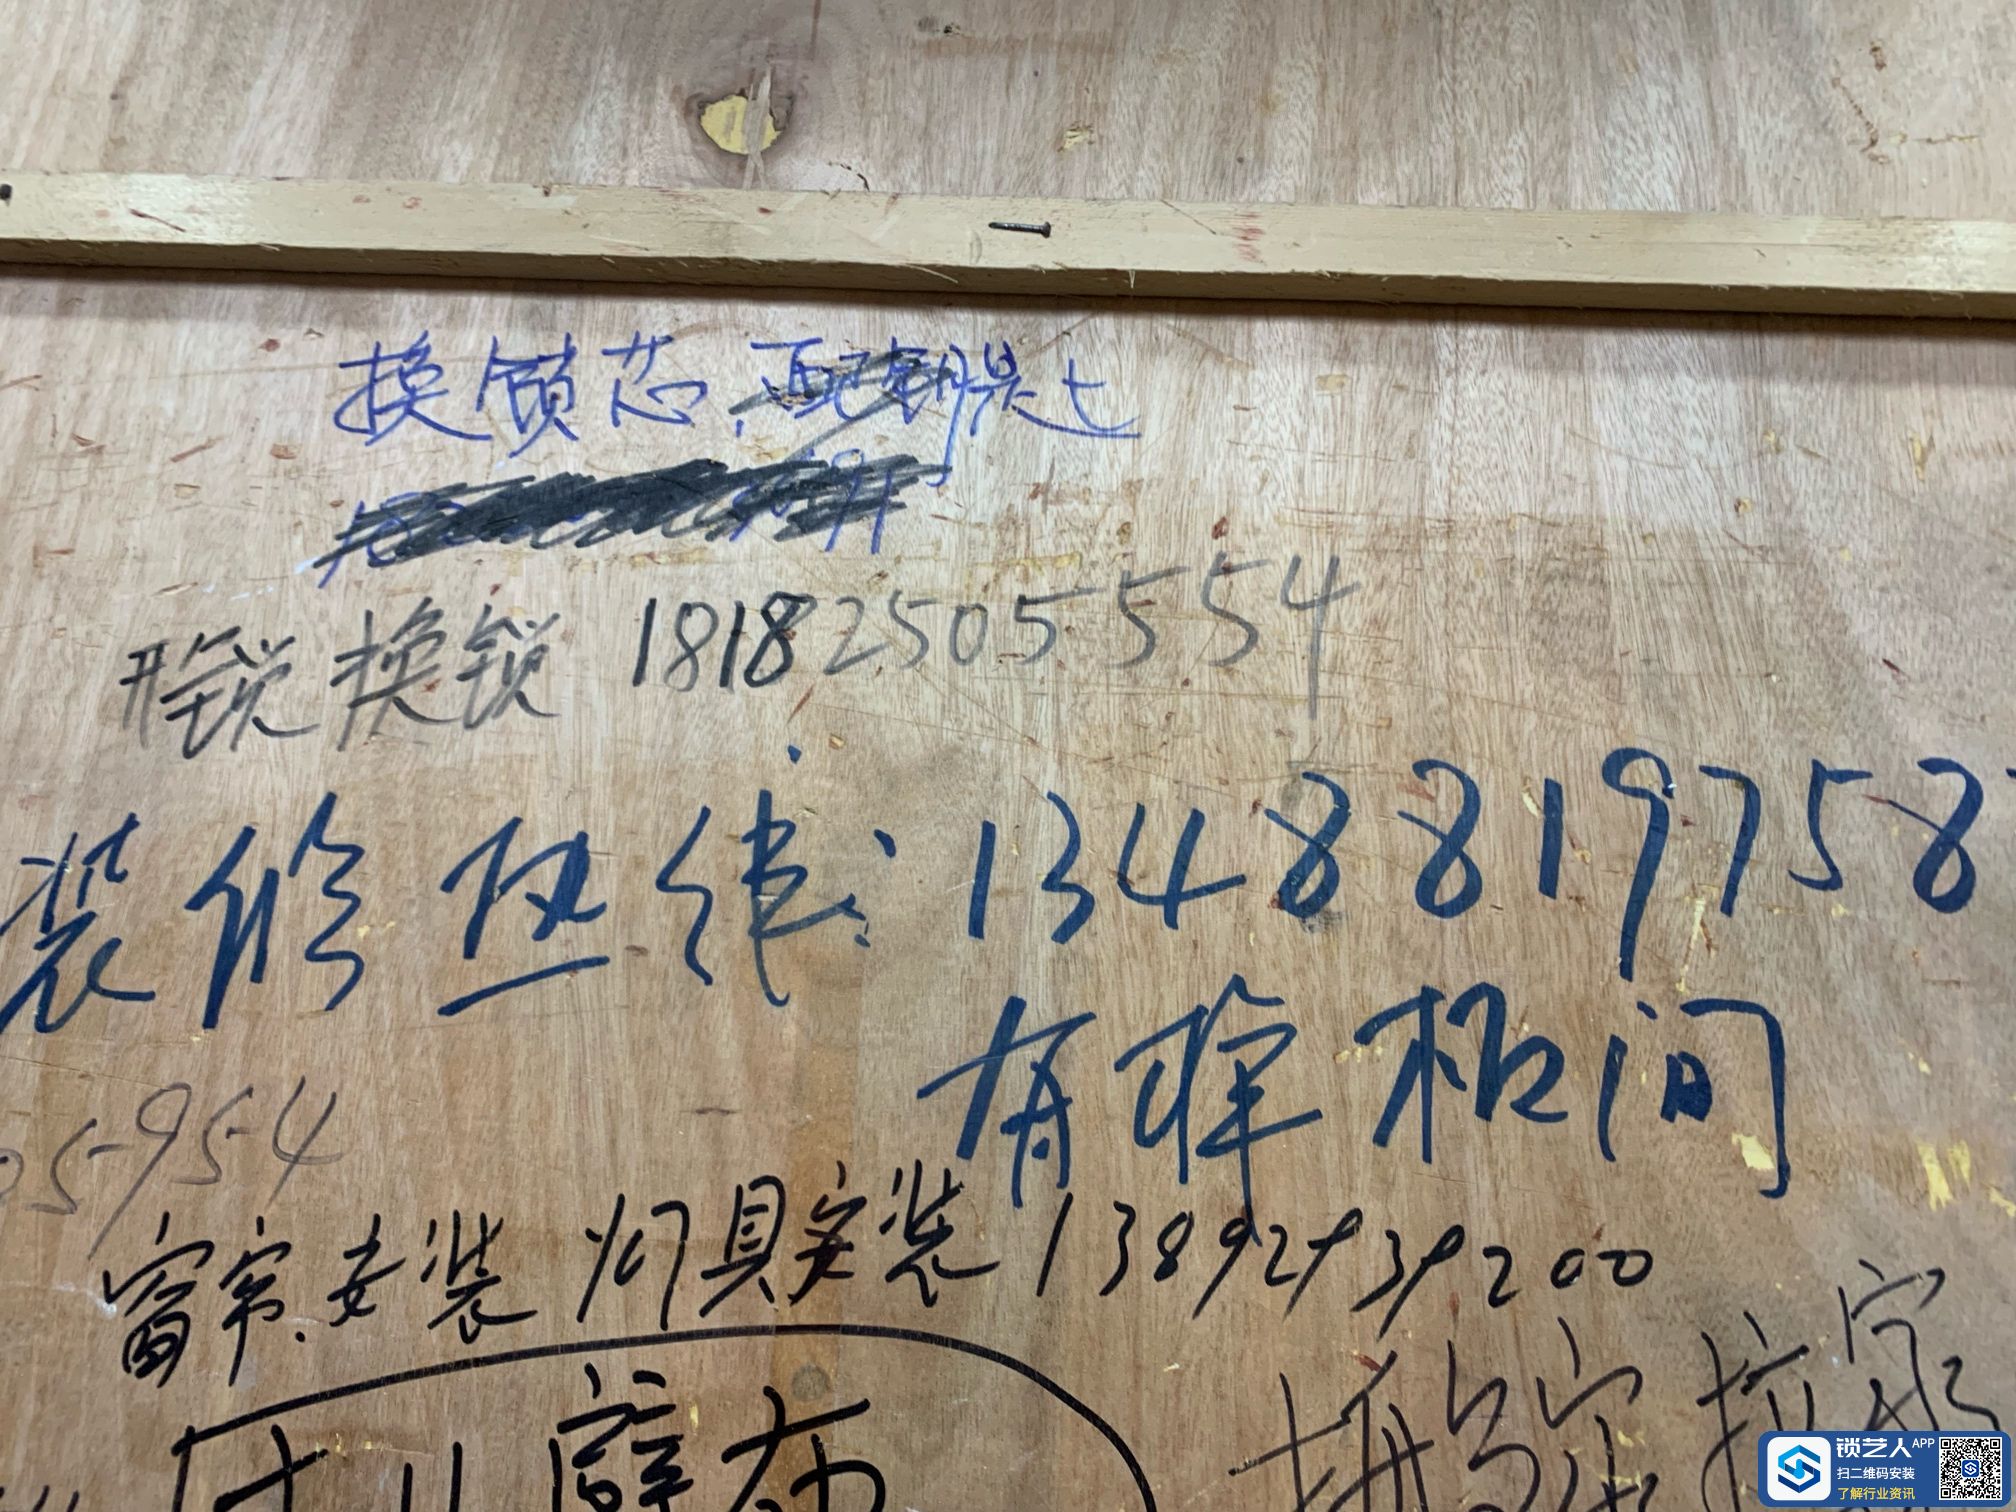 换锁芯,配钥匙
开锁换锁 18182505554
装修热线:1348819758
有样板间
05954
窗帘.安装 灯具安装 13892939200
壁布
搬家拉家
锁艺人APP
扫二维码安装
了解行业资讯